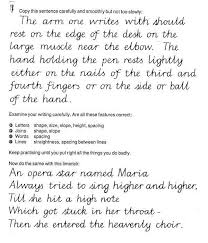 1 Copy this sentence carefully and smoothly but not too slowly:
The arm one writes with should
rest on the edge of the desk on the
large muscle near the elbow. The
hand holding the pen rests lightly
either on the nails of the third and
fourth fingers or on the side or ball
of the hand.
Examine your writing carefully. Are all these features correct:
Letters shape, size, slope, height, spacing
Joins shape, slope
Words spacing
Lines straightness, spacing between lines
Keep practising until you put right all the things you do badly.
Now do the same with this limerick:
An opera star named Maria
Always tried to sing higher and higher,
Till she hit a high note
Which got stuck in her throat-
Then she entered the heavenly choir.